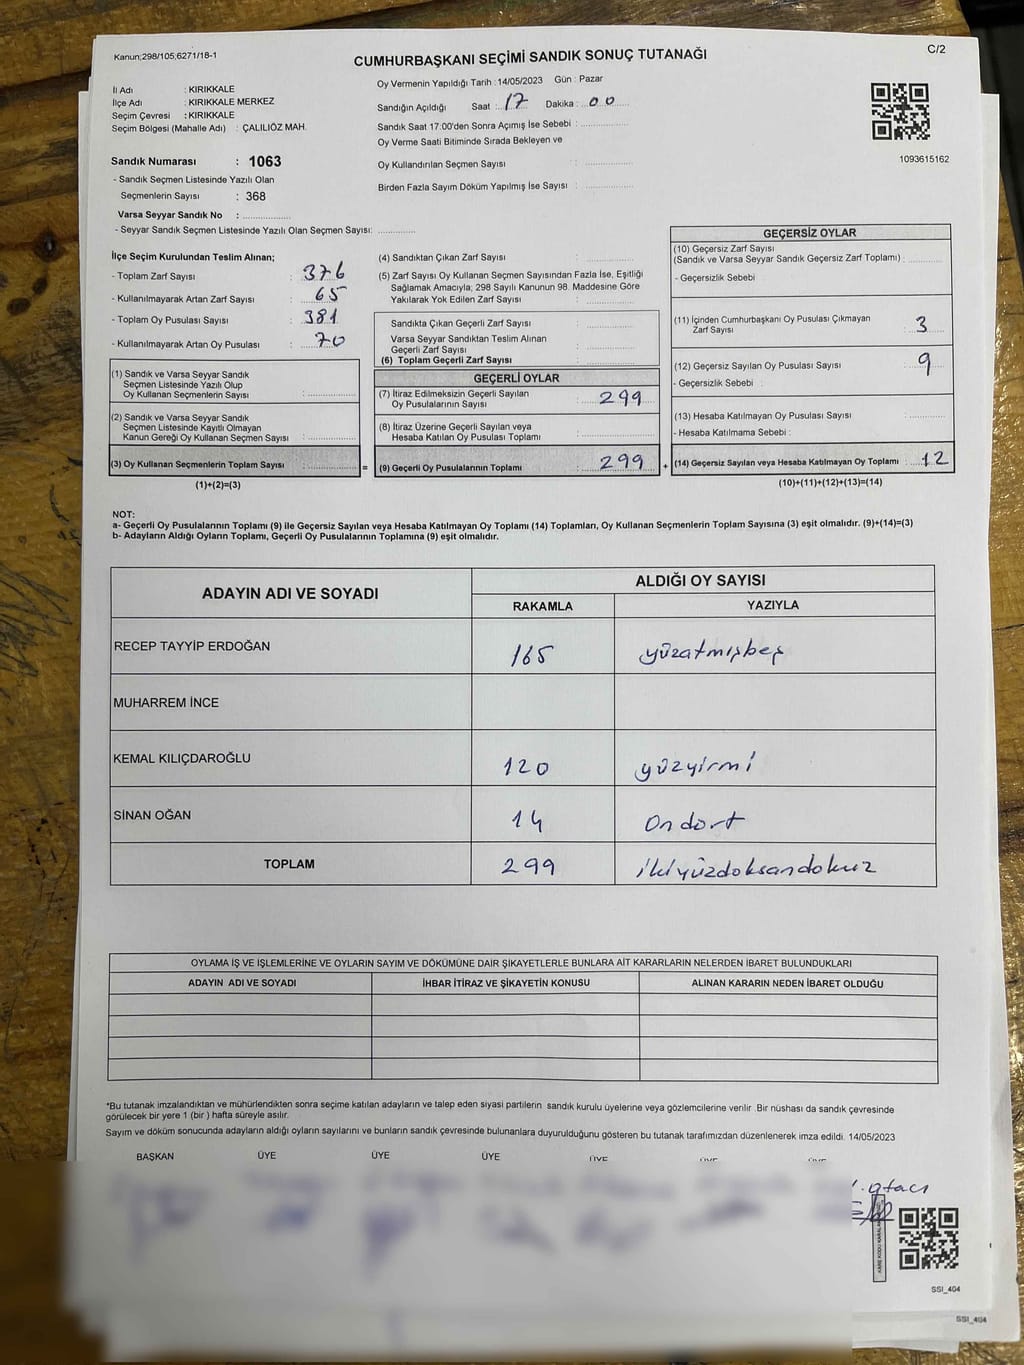 Kanun;298/105;6271/18-1
C/2
CUMHURBAŞKANI SEÇİMİ SANDIK SONUÇ TUTANAĞI
İl Adı : KIRIKKALE
İlçe Adı : KIRIKKALE MERKEZ
Seçim Çevresi : KIRIKKALE
Seçim Bölgesi (Mahalle Adı) : ÇALILIÖZ MAH.
Sandık Numarası : 1063
- Sandık Seçmen Listesinde Yazılı Olan
Seçmenlerin Sayısı : 368
Varsa Seyyar Sandık No :
- Seyyar Sandık Seçmen Listesinde Yazılı Olan Seçmen Sayısı:
Oy Vermenin Yapıldığı Tarih : 14/05/2023 Gün : Pazar
Sandığın Açıldığı Saat : 17 Dakika : 00
Sandık Saat 17:00'den Sonra Açımış İse Sebebi :
Oy Verme Saati Bitiminde Sırada Bekleyen ve
Oy Kullandırılan Seçmen Sayısı :
Birden Fazla Sayım Döküm Yapılmış İse Sayısı :
1093615162
İlçe Seçim Kurulundan Teslim Alınan;
- Toplam Zarf Sayısı : 376
- Kullanılmayarak Artan Zarf Sayısı : 65
- Toplam Oy Pusulası Sayısı : 381
- Kullanılmayarak Artan Oy Pusulası : 70
(1) Sandık ve Varsa Seyyar Sandık
Seçmen Listesinde Yazılı Olup
Oy Kullanan Seçmenlerin Sayısı :
(2) Sandık ve Varsa Seyyar Sandık
Seçmen Listesinde Kayıtlı Olmayan
Kanun Gereği Oy Kullanan Seçmen Sayısı :
(3) Oy Kullanan Seçmenlerin Toplam Sayısı :
(1)+(2)=(3)
(4) Sandıktan Çıkan Zarf Sayısı :
(5) Zarf Sayısı Oy Kullanan Seçmen Sayısından Fazla İse, Eşitliği
Sağlamak Amacıyla; 298 Sayılı Kanunun 98. Maddesine Göre
Yakılarak Yok Edilen Zarf Sayısı :
Sandıkta Çıkan Geçerli Zarf Sayısı :
Varsa Seyyar Sandıktan Teslim Alınan
Geçerli Zarf Sayısı :
(6) Toplam Geçerli Zarf Sayısı :
GEÇERLİ OYLAR
(7) İtiraz Edilmeksizin Geçerli Sayılan
Oy Pusulalarının Sayısı : 299
(8) İtiraz Üzerine Geçerli Sayılan veya
Hesaba Katılan Oy Pusulası Toplamı :
= (9) Geçerli Oy Pusulalarının Toplamı : 299
GEÇERSİZ OYLAR
(10) Geçersiz Zarf Sayısı
(Sandık ve Varsa Seyyar Sandık Geçersiz Zarf Toplamı) :
- Geçersizlik Sebebi :
(11) İçinden Cumhurbaşkanı Oy Pusulası Çıkmayan
Zarf Sayısı : 3
(12) Geçersiz Sayılan Oy Pusulası Sayısı : 9
- Geçersizlik Sebebi :
(13) Hesaba Katılmayan Oy Pusulası Sayısı :
- Hesaba Katılmama Sebebi :
+ (14) Geçersiz Sayılan veya Hesaba Katılmayan Oy Toplamı : 12
(10)+(11)+(12)+(13)=(14)
NOT:
a- Geçerli Oy Pusulalarının Toplamı (9) ile Geçersiz Sayılan veya Hesaba Katılmayan Oy Toplamı (14) Toplamları, Oy Kullanan Seçmenlerin Toplam Sayısına (3) eşit olmalıdır. (9)+(14)=(3)
b- Adayların Aldığı Oyların Toplamı, Geçerli Oy Pusulalarının Toplamına (9) eşit olmalıdır.
ADAYIN ADI VE SOYADI
ALDIĞI OY SAYISI
RAKAMLA YAZIYLA
RECEP TAYYİP ERDOĞAN 165 yüzatmışbeş
MUHARREM İNCE
KEMAL KILIÇDAROĞLU 120 yüzyirmi
SİNAN OĞAN 14 Ondört
TOPLAM 299 ikiyüzdoksandokuz
OYLAMA İŞ VE İŞLEMLERİNE VE OYLARIN SAYIM VE DÖKÜMÜNE DAİR ŞİKAYETLERLE BUNLARA AİT KARARLARIN NELERDEN İBARET BULUNDUKLARI
ADAYIN ADI VE SOYADI İHBAR İTİRAZ VE ŞİKAYETİN KONUSU ALINAN KARARIN NEDEN İBARET OLDUĞU
*Bu tutanak imzalandıktan ve mühürlendikten sonra seçime katılan adayların ve talep eden siyasi partilerin sandık kurulu üyelerine veya gözlemcilerine verilir .Bir nüshası da sandık çevresinde
görülecek bir yere 1 (bir ) hafta süreyle asılır.
Sayım ve döküm sonucunda adayların aldığı oyların sayılarını ve bunların sandık çevresinde bulunanlara duyurulduğunu gösteren bu tutanak tarafımızdan düzenlenerek imza edildi. 14/05/2023
BAŞKAN ÜYE ÜYE ÜYE ÜYE ÜYE ÜYE
SSI_404
SSI_404